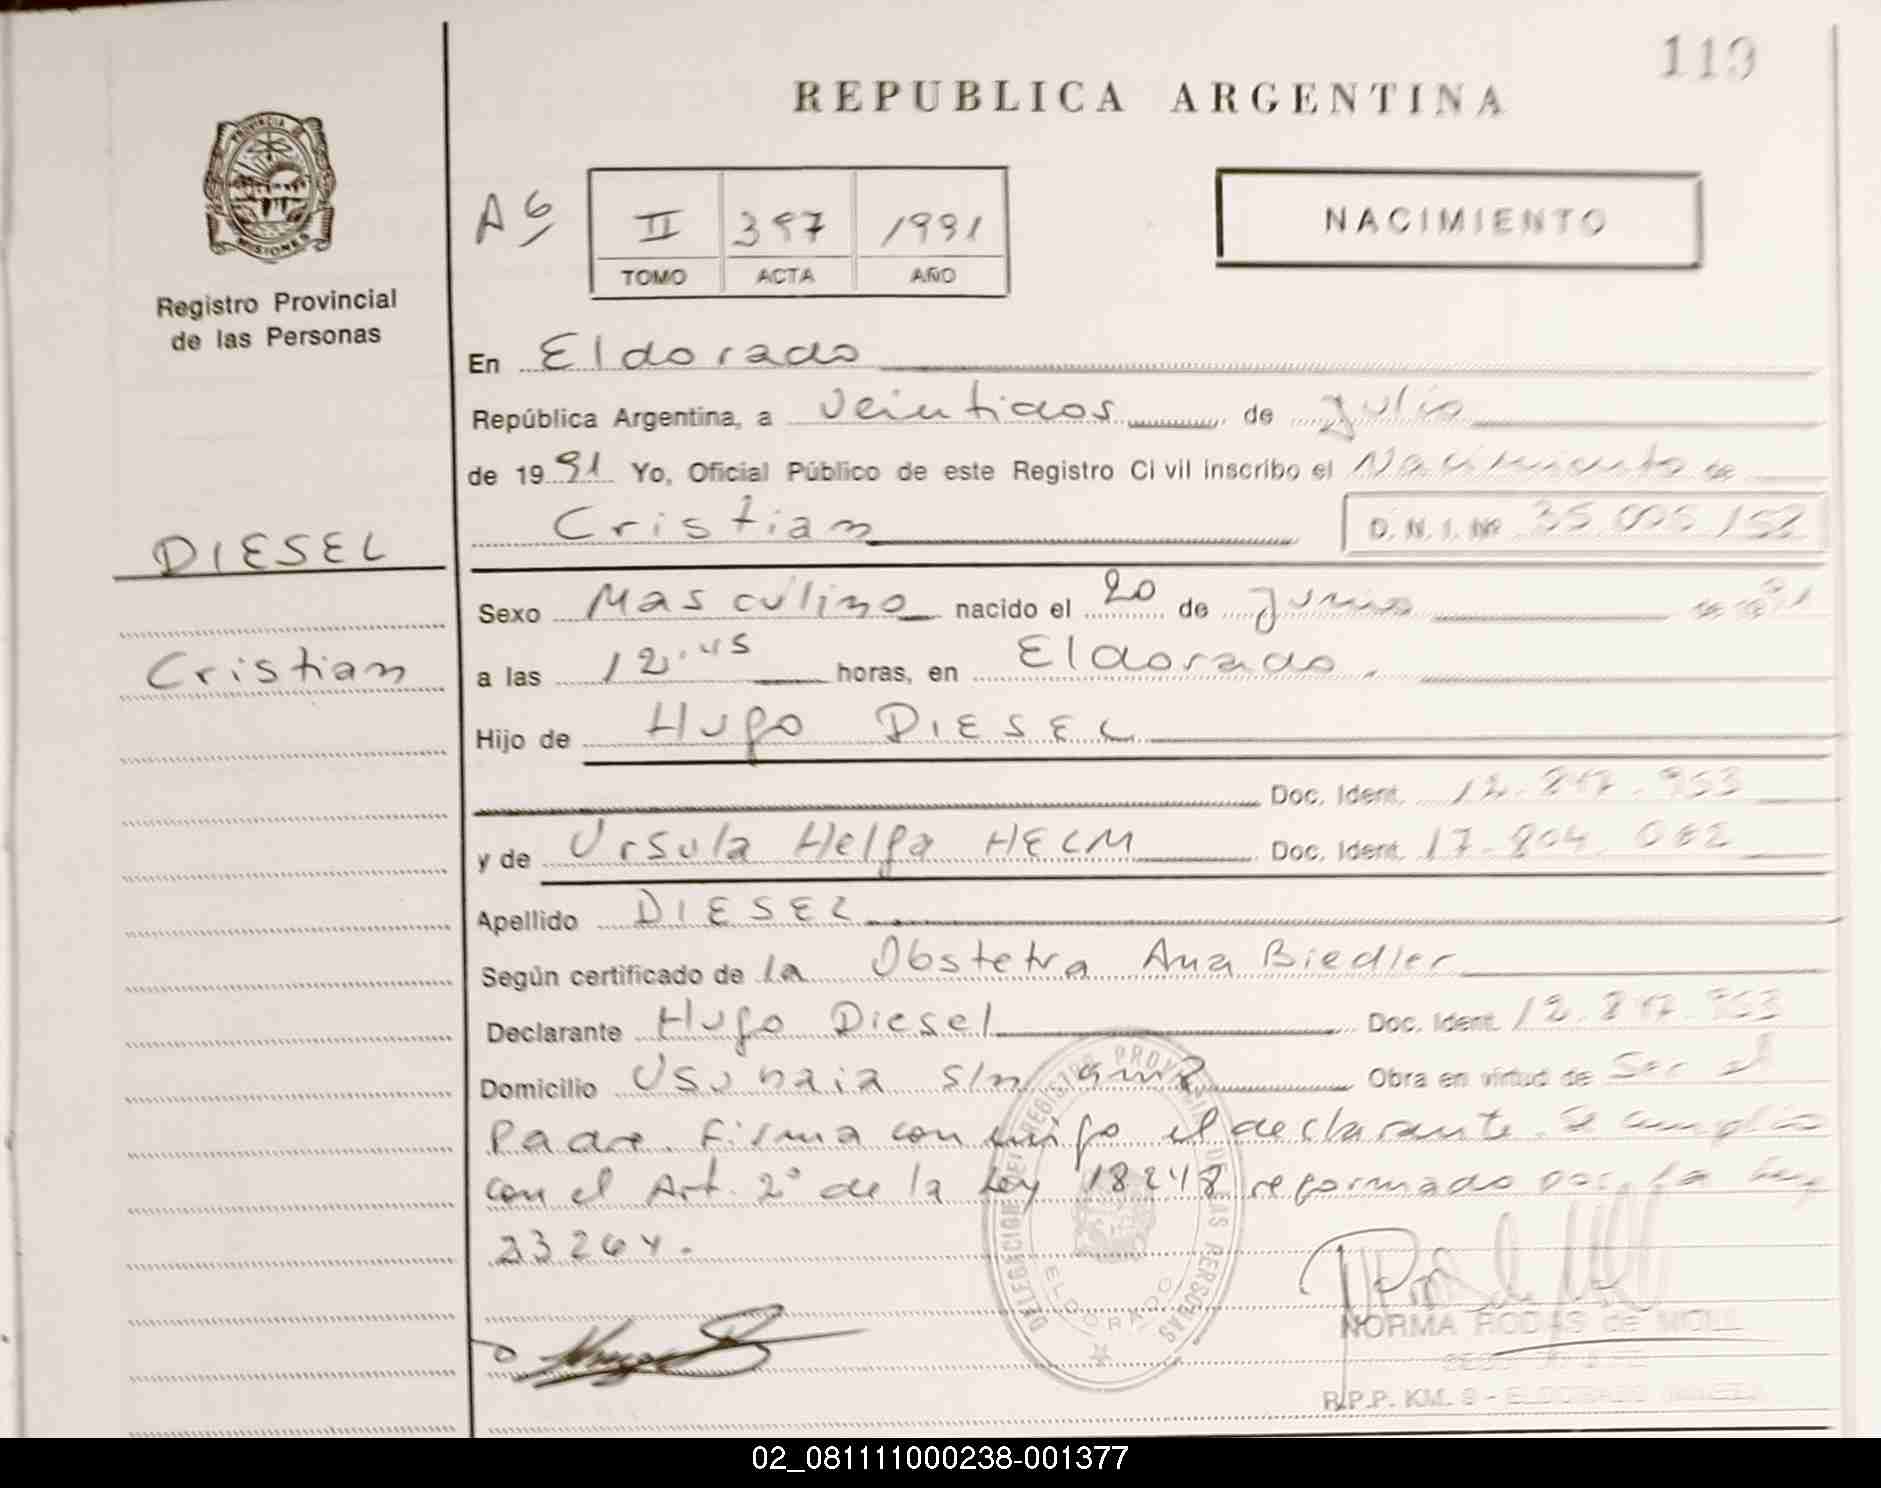 119
REPUBLICA ARGENTINA
PROVINCIA DE
MISIONES
Registro Provincial
de las Personas
A6
II 397 1991
TOMO ACTA AÑO
NACIMIENTO
En Eldorado
República Argentina, a veintidos de Julio
de 1991 Yo, Oficial Público de este Registro Civil inscribo el Nacimiento de
Cristian D.N.I. Nº 35.005.152
DIESEL
Cristian
Sexo Masculino nacido el 20 de Junio de 1991
a las 12.45 horas, en Eldorado.
Hijo de Hugo DIESEL
Doc. Ident. 12.847.953
y de Ursula Helga HELM Doc. Ident. 17.804.082
Apellido DIESEL
Según certificado de la Obstetra Ana Biedler
Declarante Hugo Diesel Doc. Ident. 12.847.953
Domicilio Usuhaia s/n Obra en virtud de Ser el
Padre. Firma con migo el declarante. Se cumplio
con el Art. 2° de la Ley 18248 reformado por la Ley
23264.
DELEGACION DEL REGISTRO PROVINCIAL DE LAS PERSONAS
ELDORADO
NORMA RODAS de MOLL
R.P.P. KM. 9 - ELDORADO
02_081111000238-001377